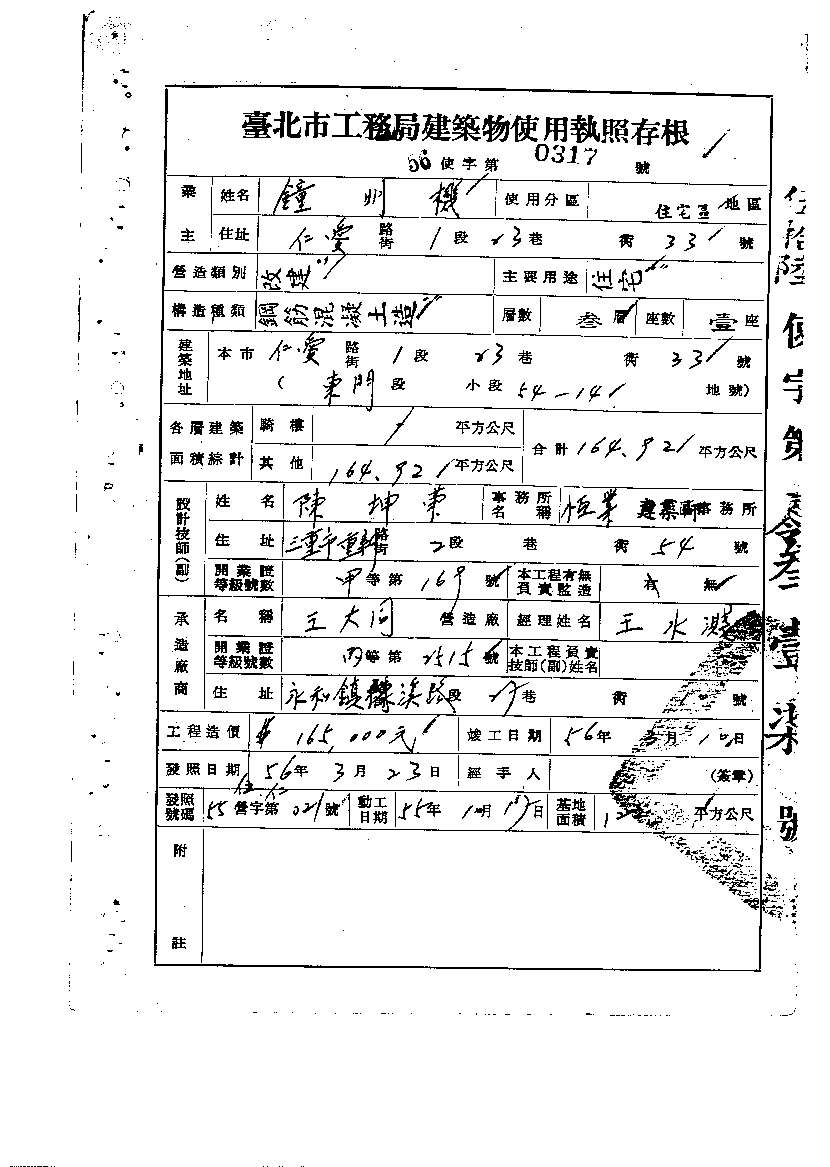 臺北市工務局建築物使用執照存根
56使字第 0317 號
業主 姓名 鐘明機 使用分區 住宅區 地區
住址 仁愛路街 1段 23巷 衖 33 號
營造類別 改建 主要用途 住宅
構造種類 鋼筋混凝土造 層數 叁層 座數 壹座
建築地址 本市 仁愛路街 1段 23巷 衖 33 號
(東門段 小段 54-14 地號)
各層建築面積綜計 騎樓 平方公尺 合計 164.92 平方公尺
其他 164.92 平方公尺
設計技師(副) 姓名 陳坤東 事務所名稱 恒業建築師事務所
住址 三重市重新路街 2段 巷 衖 54 號
開業證等級號數 甲等第 169 號 本工程有無負責監造 有 無
承造廠商 名稱 王大同 營造廠 經理姓名 王水
開業證等級號數 丙等第 2515 號 本工程負責技師(副)姓名
住址 永和鎮 溪路段 27巷 衖 號
工程造價 $165,000元 竣工日期 56年 3月 10日
發照日期 56年 3月 23日 經手人 (簽章)
發照號碼 55營字第 021 號 動工日期 55年 10月 17日 基地面積 平方公尺
附註
伍拾陸使字第零叁壹柒號